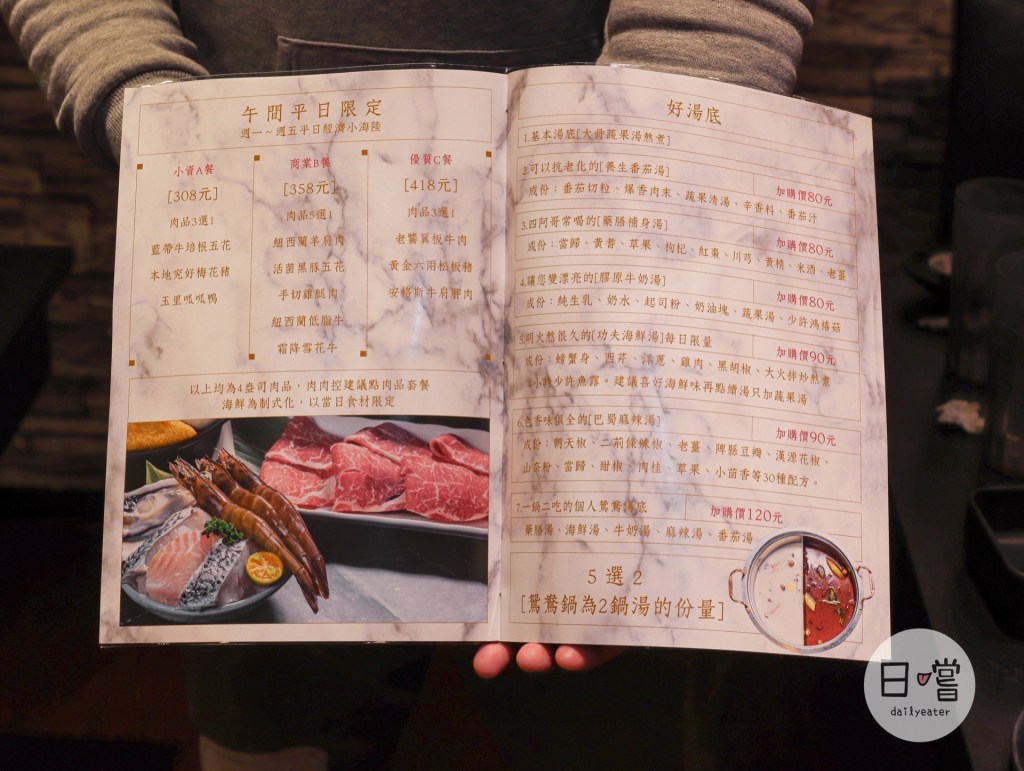 午間平日限定
週一～週五平日經濟小海陸
小資A餐
[308元]
肉品3選1
藍帶牛培根五花
本地究好梅花豬
玉里呱呱鴨
商業B餐
[358元]
肉品5選1
紐西蘭羊肩肉
活菌黑豚五花
手切雞腿肉
紐西蘭低脂牛
霜降雪花牛
優質C餐
[418元]
肉品3選1
老饕翼板牛肉
黃金六兩松板豬
安格斯牛肩胛肉
以上均為4盎司肉品，肉肉控建議點肉品套餐
海鮮為制式化，以當日食材限定
好湯底
1.基本湯底[大骨蔬果湯熬煮]
2.可以抗老化的[養生番茄湯]
加購價80元
成份：番茄切粒、爆香肉末、蔬果清湯、辛香料、番茄汁
3.四阿哥常喝的[藥膳補身湯]
加購價80元
成份：當歸、黃耆、草果、枸杞、紅棗、川芎、黃精、米酒、老薑
4.讓您變漂亮的[膠原牛奶湯]
加購價80元
成份：純生乳、奶水、起司粉、奶油塊、蔬果湯、少許鴻禧菇
5.明火熬很久的[功夫海鮮湯]每日限量
加購價90元
成份：螃蟹身、西芹、洋蔥、雞肉、黑胡椒、大火拌炒熬煮
4小時少許魚露。建議喜好海鮮味再點續湯只加蔬果湯
6.色香味俱全的[巴蜀麻辣湯]
加購價90元
成份：朝天椒、二荊條辣椒、老薑、陴縣豆瓣、漢源花椒、
山奈粉、當歸、甜椒、肉桂、草果、小茴香等30種配方。
7.一鍋二吃的個人鴛鴦湯底
加購價120元
藥膳湯、海鮮湯、牛奶湯、麻辣湯、番茄湯
5選2
[鴛鴦鍋為2鍋湯的份量]
日嚐
dailyeater